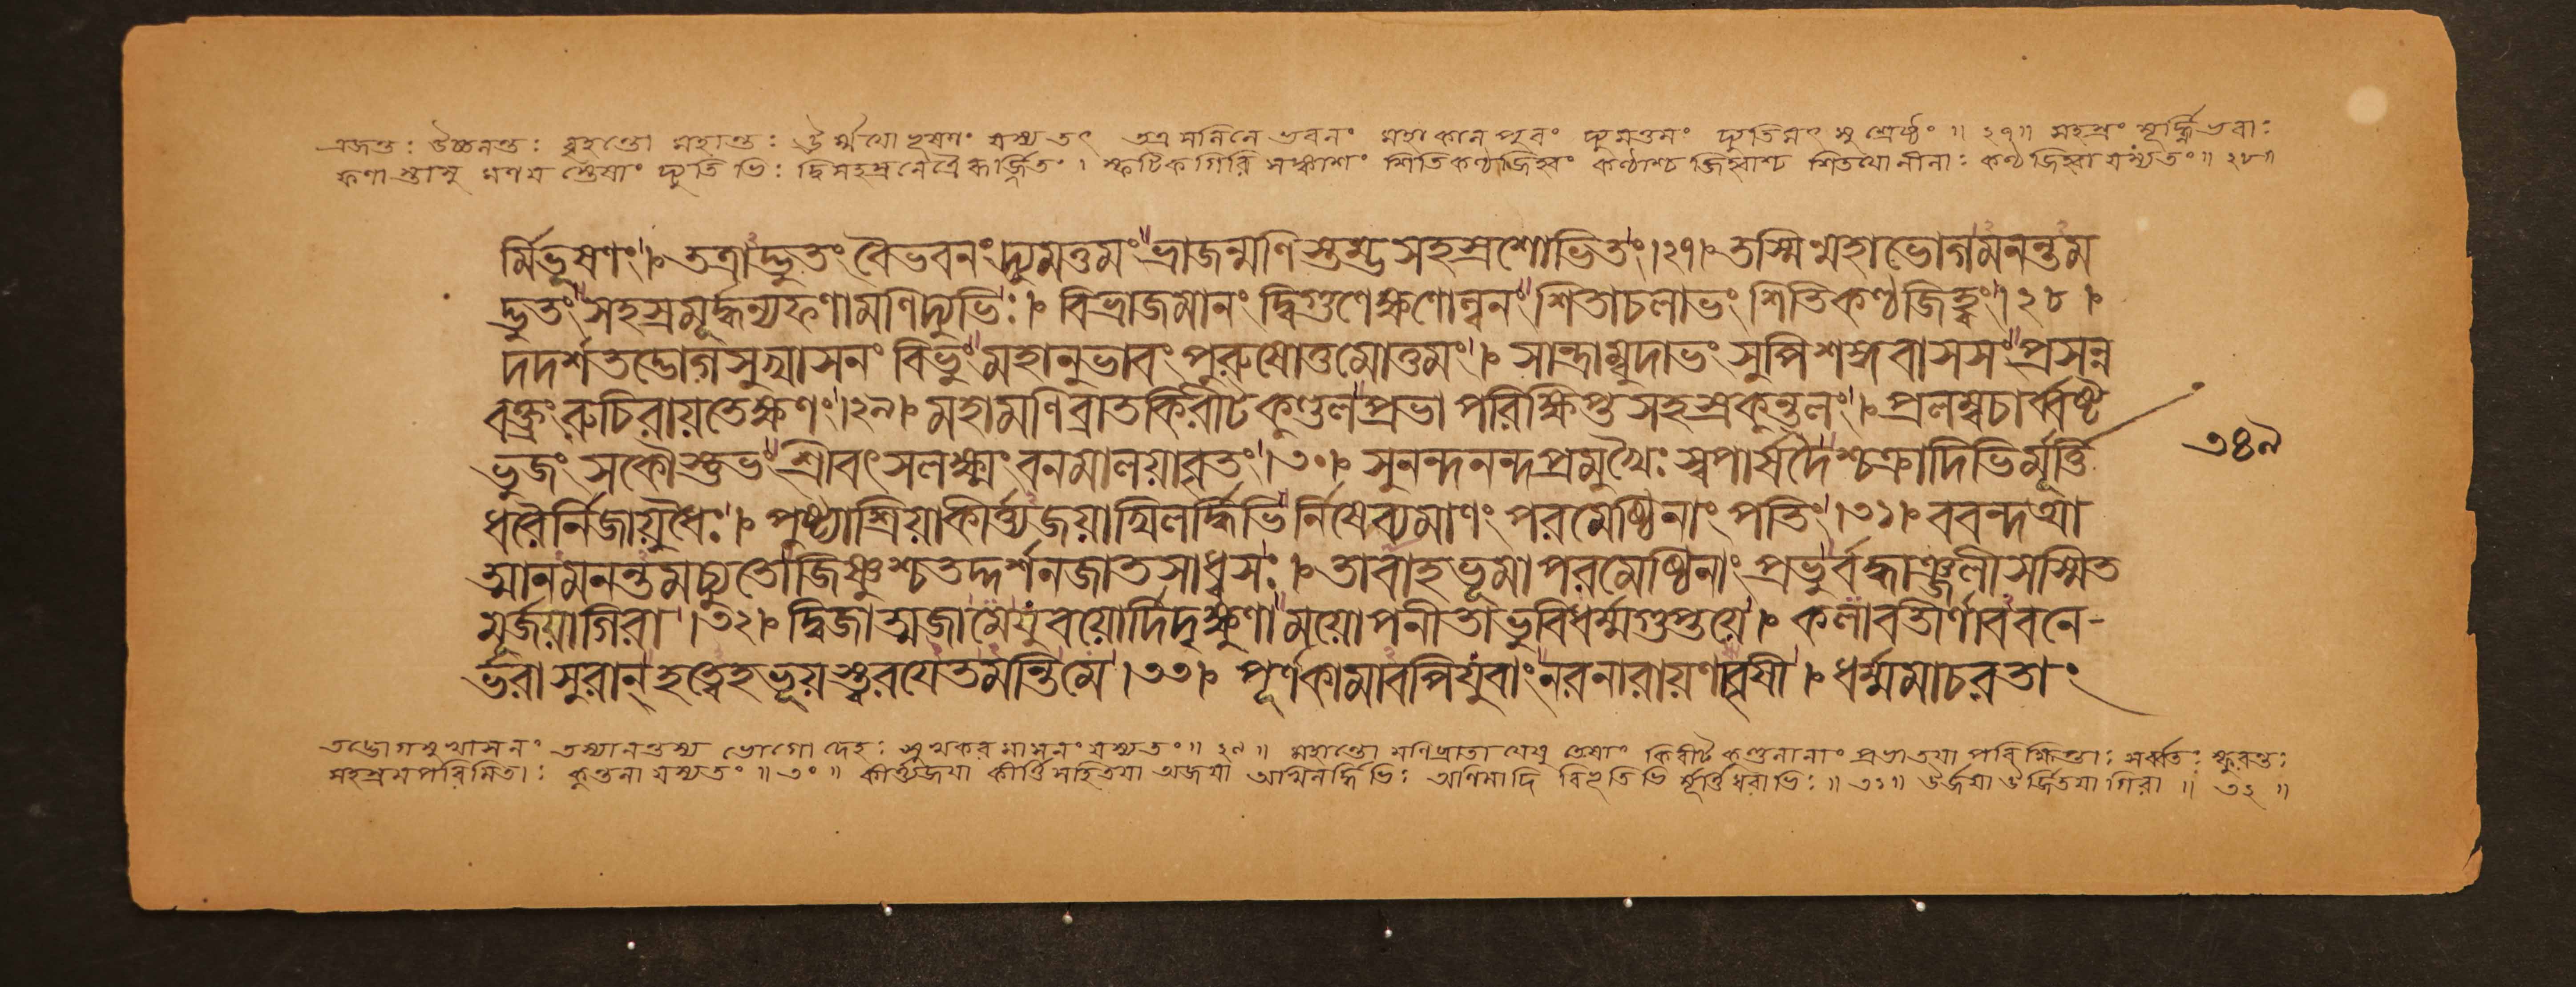 এজন্তঃ উচ্চলন্তঃ বৃহন্তো মহান্তঃ ঊর্ম্ময়ো ভূষণং যস্য তৎ তত্র সলিলে ভবনং মহাকাল পুরং দ্যুমত্তমং দ্যুতিমৎসু শ্রেষ্ঠং ॥ ২৭॥ সহস্রং মূর্দ্ধ্নি ভবাঃ
ফণাস্তাসু মণয়স্তেষাং দ্যুতিভিঃ দ্বিসহস্রনেত্রৈরূর্জ্জিতং । স্ফটিকগিরি সঙ্কাশং শিতিকণ্ঠজিহ্বং কণ্ঠাশ্চ জিহ্বাশ্চ শিতয়ো নীলাঃ কণ্ঠজিহ্বা যস্য তং॥ ২৮॥
র্মিভূষণং।৽ তত্রাদ্ভুতং বৈভবনং দ্যুমত্তমং ভ্রাজন্মণিস্তম্ভসহস্রশোভিতং।২৭।৽ তস্মিন্মহাভোগমনন্তম
দ্ভুতং সহস্রমূর্দ্ধন্যফণামণিদ্যুভিঃ।৽ বিভ্রাজমানং দ্বিগুণেক্ষণোল্বনং শিতাচলাভং শিতিকণ্ঠজিহ্বং।২৮।৽
দদর্শ তদ্ভোগসুখাসনং বিভুং মহানুভাবং পুরুষোত্তমোত্তমং।৽ সান্দ্রাম্বুদাভং সুপিশঙ্গবাসসং প্রসন্ন
বক্ত্রং রুচিরায়তেক্ষণং।২৯।৽ মহামণিব্রাতকিরীটকুণ্ডলপ্রভাপরিক্ষিপ্তসহস্রকুন্তলং।৽ প্রলম্বচার্ব্বষ্ট
ভুজং সকৌস্তুভং শ্রীবৎসলক্ষ্মং বনমালয়াবৃতং।৩০।৽ সুনন্দনন্দপ্রমুখৈঃ স্বপার্ষদৈশ্চক্রাদিভির্মূর্ত্তি
৩৪৯
ধরৈর্নিজায়ুধৈঃ।৽ পুষ্ট্যাশ্রিয়াকীর্ত্ত্যজয়াখিলর্দ্ধিভির্নিষেব্যমাণং পরমেষ্ঠিনাং পতিং।৩১।৽ ববন্দআ
ত্মানমনন্তমচ্যুতোজিষ্ণুশ্চ তদ্দর্শনজাতসাধ্বসঃ।৽ তাবাহভূমাপরমেষ্ঠিনাং প্রভুর্বদ্ধাঞ্জলীসস্মিত
মূর্জয়াগিরা।৩২।৽ দ্বিজাত্মজামেযুবয়োর্দিদৃক্ষুণা ময়োপনীতাভুবিধর্ম্মগুপ্তয়ে।৽ কলাবতীর্ণাববনে-
র্ভরাসুরান্ হত্বেহভূয়স্ত্বরয়েতমন্তিমে।৩৩।৽ পূর্ণকামাবপিযুবাং নরনারায়ণাবৃষী।৽ ধর্ম্মমাচরতাং
তদ্ভোগসুখাসনং তস্যানন্তস্য ভোগো দেহঃ সুখকরমাসনং যস্য তং॥ ২৯॥ মহান্তো মণিব্রাতা যেষু তেষাং কিরীটকুণ্ডলানাং প্রভা তয়া পরিক্ষিপ্তাঃ সর্ব্বতঃ স্ফুরন্তঃ
সহস্রমপরিমিতাঃ কুন্তলা যস্য তং ॥ ৩০ ॥ কীর্ত্ত্যজয়া কীর্ত্তিসহিতয়া অজয়া অখিলর্দ্ধিভিঃ অণিমাদি বিভূতিভির্মূর্ত্তিধরাভিঃ॥ ৩১॥ ঊর্জয়া ঊর্জ্জিতয়া গিরা ॥ ৩২ ॥